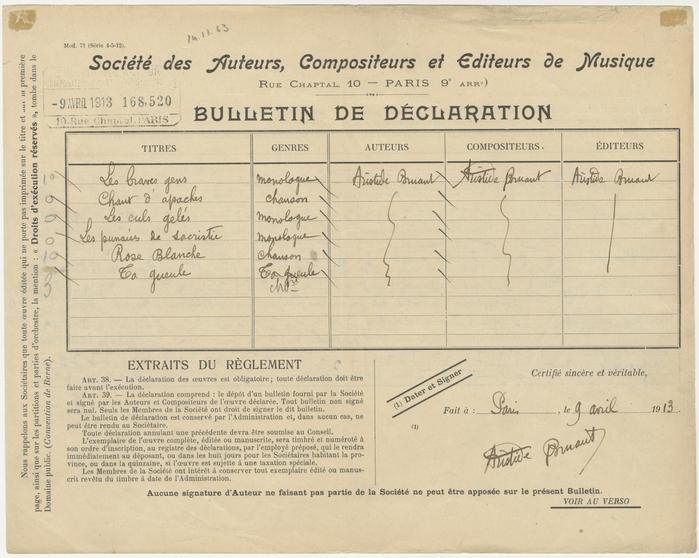 14.11.63
Mod. 71 (Série 4-5-12).
Société des Auteurs, Compositeurs et Editeurs de Musique
RUE CHAPTAL 10 — PARIS 9e ARRt)
-9 AVRIL 1913 168,520
10, Rue Chaptal, PARIS
BULLETIN DE DÉCLARATION
TITRES GENRES AUTEURS COMPOSITEURS. ÉDITEURS
Les braves gens monologue Aristide Bruant Aristide Bruant Aristide Bruant
Chant d'apaches chanson
Les culs gelés monologue
Les punaises de sacristie monologue
Rose Blanche chanson
Ta gueule Ta gueule
Nous rappelons aux Sociétaires que toute œuvre éditée qui ne porte pas imprimée sur le titre et première
page, ainsi que sur les partitions et parties d'orchestre, la mention : « Droits d'exécution réservés », tombe dans le
Domaine public. (Convention de Berne).
EXTRAITS DU RÈGLEMENT
ART. 38. — La déclaration des œuvres est obligatoire ; toute déclaration doit être
faite avant l'exécution.
ART. 39. — La déclaration comprend : le dépôt d'un bulletin fourni par la Société
et signé par les Auteurs et Compositeurs de l'œuvre déclarée. Tout bulletin non signé
sera nul. Seuls les Membres de la Société ont droit de signer le dit bulletin.
Le bulletin de déclaration est conservé par l'Administration et, dans aucun cas, ne
peut être rendu au Sociétaire.
Toute déclaration annulant une précédente devra être soumise au Conseil.
L'exemplaire de l'œuvre complète, éditée ou manuscrite, sera timbré et numéroté à
son ordre d'inscription, au registre des déclarations, par l'employé préposé, qui le rendra
immédiatement au déposant, ou dans les huit jours pour les Sociétaires habitant la pro-
vince, ou dans la quinzaine, si l'œuvre est sujette à une taxation spéciale.
Les Membres de la Société ont intérêt à conserver tout exemplaire édité ou manus-
crit revêtu du timbre à date de l'Administration.
(1) Dater et Signer
Certifié sincère et véritable,
Fait à : Paris, le 9 avril 1913.
(1)
Aristide Bruant
Aucune signature d'Auteur ne faisant pas partie de la Société ne peut être apposée sur le présent Bulletin.
VOIR AU VERSO